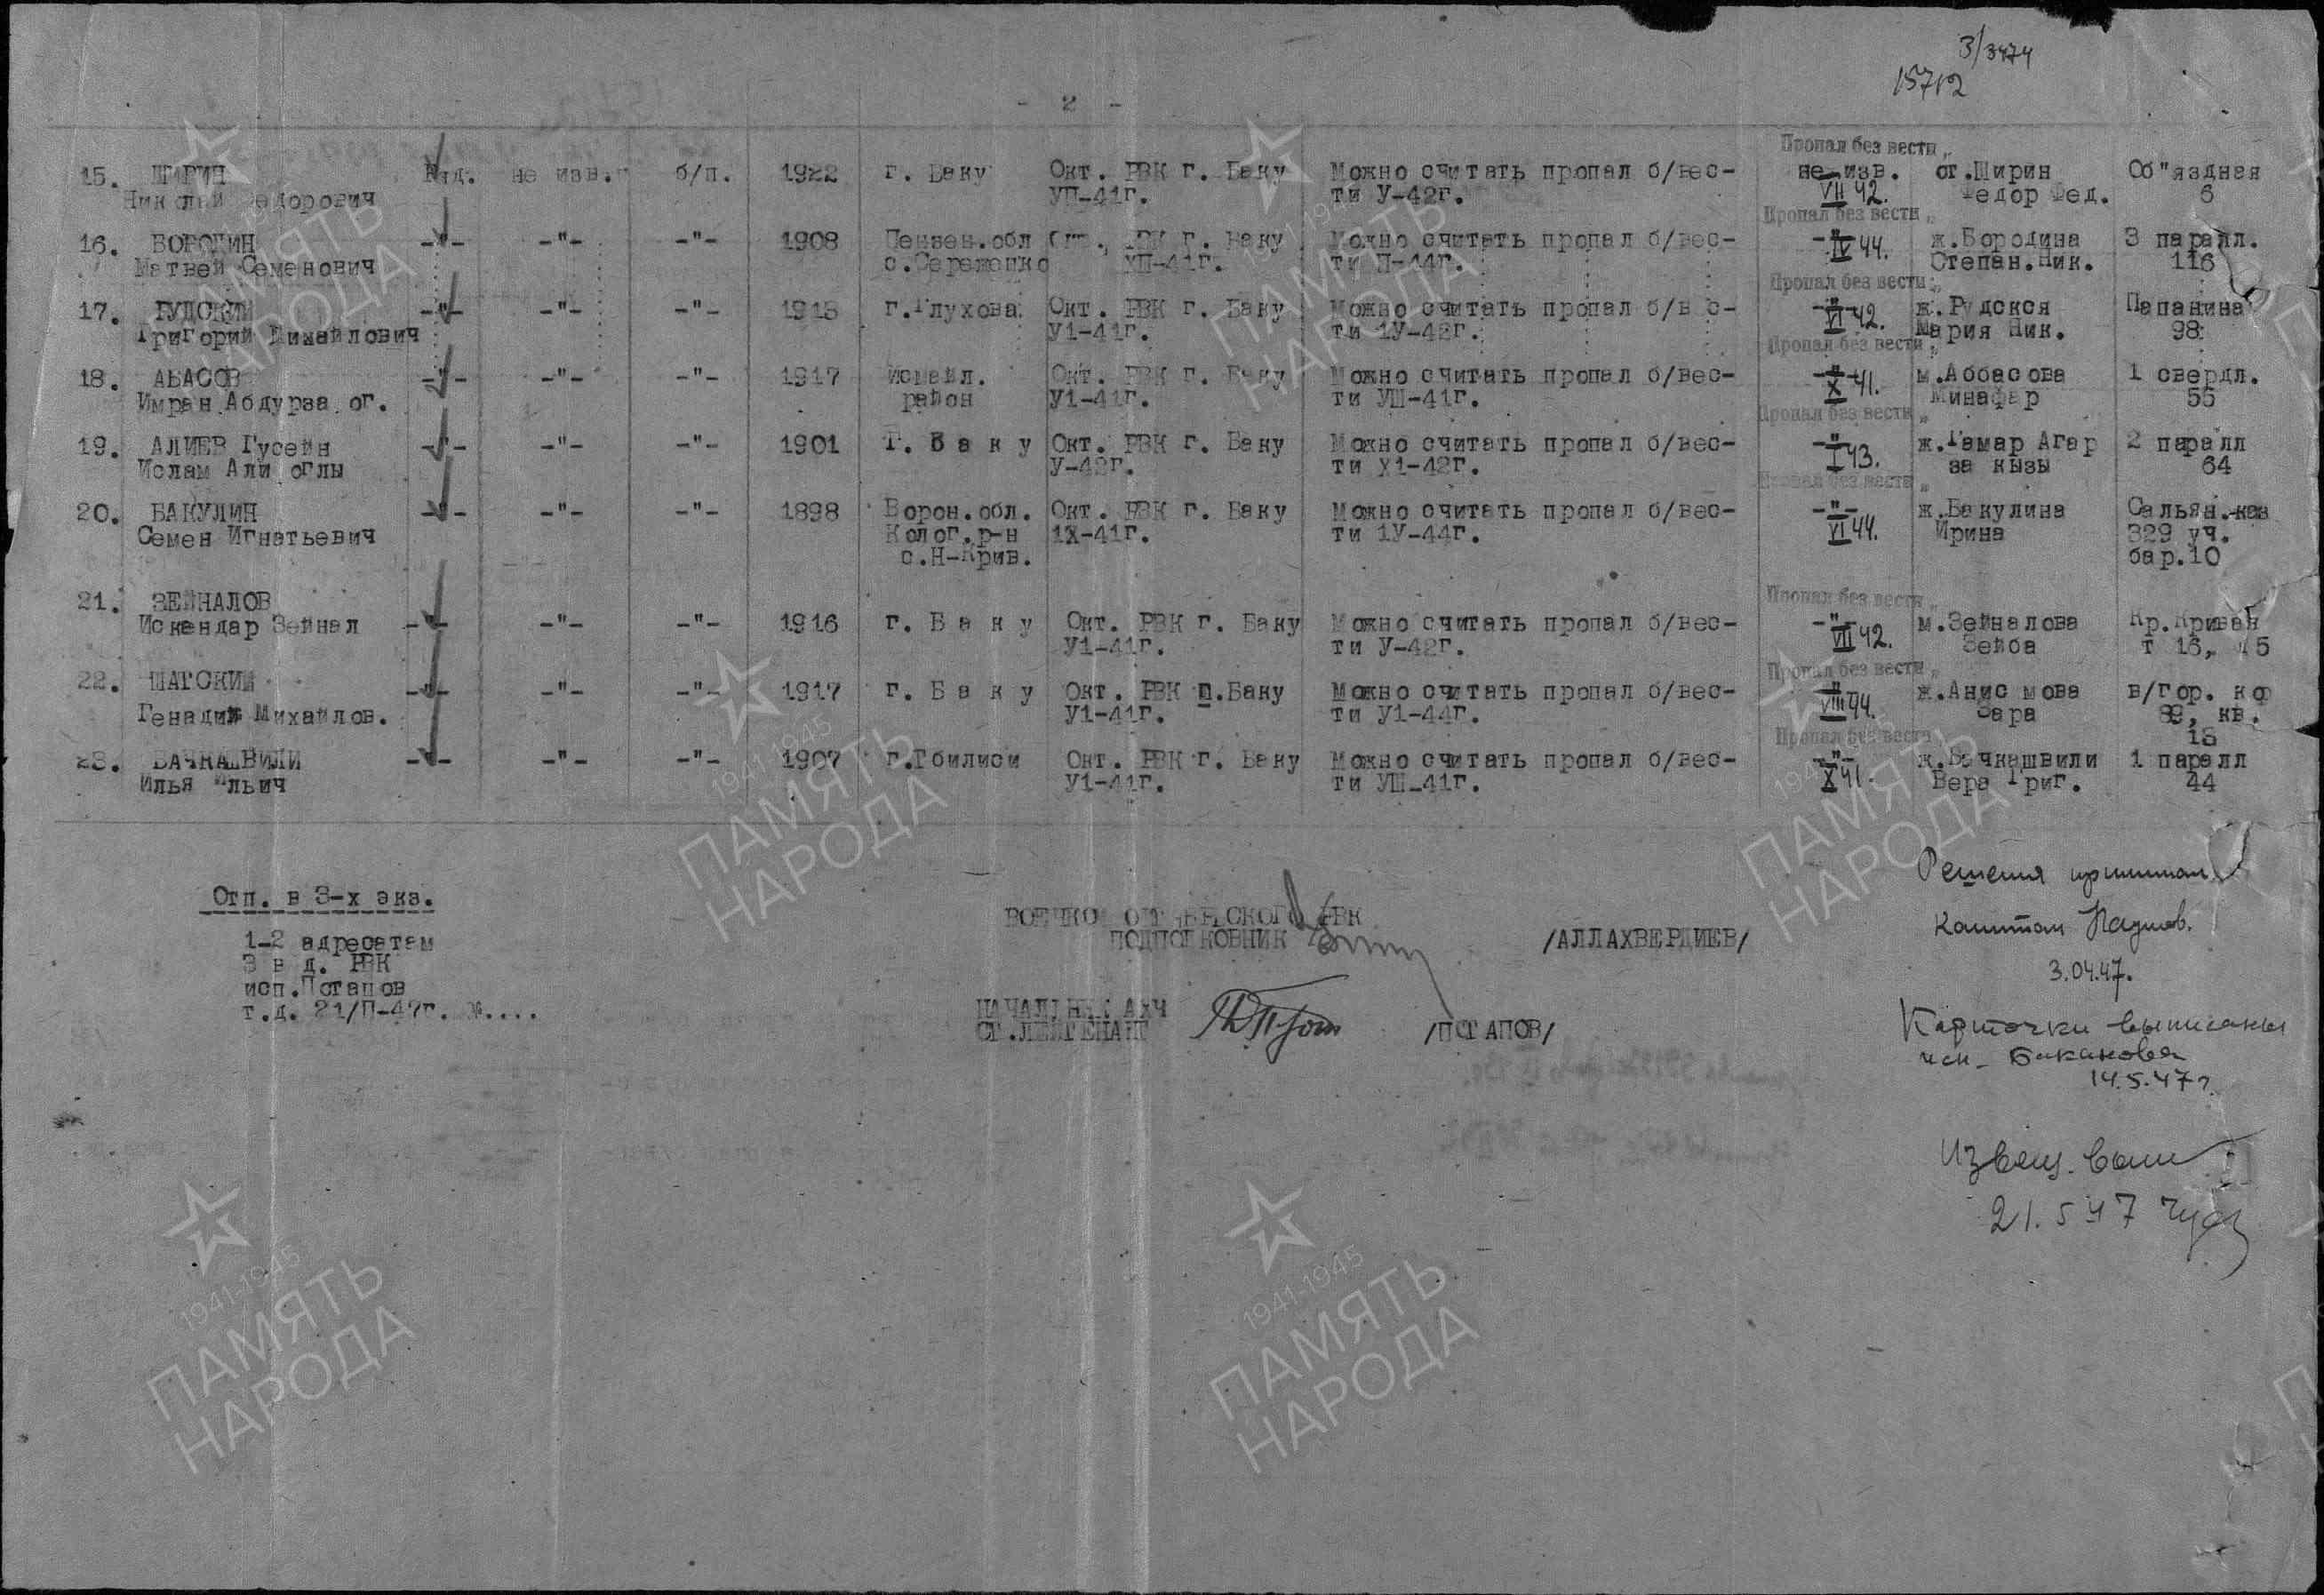 3/3474
15712
- 2 -
Пропал без вести
15. ШИРИН Ряд. не изв. б/п. 1922 г. Баку Окт. РВК г. Баку Можно считать пропал б/вес- не изв. от.Ширин Об"яздная
Николай Федорович УП-41г. ти У-42г. VII 42. Федор Фед. 6
Пропал без вести „
16. БОРОДИН -"- -"- -"- 1908 Пензен.обл Окт. РВК г. Баку Можно считать пропал б/вес- -"- ж.Бородина 3 паралл.
Матвей Семенович УП-41г. ти П-44г. IV 44. Степан.Ник. 116
Пропал без вести „
17. РУДСКИЙ -"- -"- -"- 1918 г.Глухова Окт. РВК г. Баку Можно считать пропал б/в с- -"- ж.Рудская Папанина
Григорий Михайлович У1-41г. ти 1У-42г. VI 42. Мария Ник. 98
Пропал без вести „
18. АБАСОВ -"- -"- -"- 1917 Исмаил. Окт. РВК г. Баку Можно считать пропал б/вес- -"- м.Аббасова 1 свердл.
Имран Абдурза ог. район У1-41г. ти УШ-41г. X 41. Минафар 55
Пропал без вести „
19. АЛИЕВ Гусейн -"- -"- -"- 1901 г. Б а к у Окт. РВК г. Баку Можно считать пропал б/вес- -"- ж.Тамар Агар 2 паралл
Ислам Али оглы У-42г. ти Х1-42г. I 43. за кызы 64
Пропал без вести „
20. БАКУЛИН -"- -"- -"- 1898 Ворон.обл. Окт. РВК г. Баку Можно считать пропал б/вес- -"- ж.Бакулина Сальян.каз
Семен Игнатьевич Колог.р-н 1Х-41г. ти 1У-44г. VI 44. Ирина 329 уч.
с.Н-Крив. бар.10
Пропал без вести „
21. ЗЕЙНАЛОВ
Искендар Зейнал -"- -"- -"- 1916 г. Б а к у Окт. РВК г. Баку Можно считать пропал б/вес- -"- м.Зейналова Кр.Кривай
У1-41г. ти У-42г. VII 42. Зейба т 16,
Пропал без вести „
22. ШАГСКИЙ -"- -"- -"- 1917 г. Б а к у Окт. РВК п.Баку Можно считать пропал б/вес- -"- ж.Анис мова в/гор. к
Генадий Михайлов. У1-41г. ти У1-44г. VIII 44. Зара 89, кв.
Пропал без вести 18
23. БАЧКАШВИЛИ -"- -"- -"- 1907 г.Тбилиси Окт. РВК г. Баку Можно считать пропал б/вес- -"- ж.Бачкашвили 1 паралл
Илья Ильич У1-41г. ти УШ-41г. X 41. Вера Григ. 44
Отп. в 3-х экз.
1-2 адресатам
3 в д. РВК
исп.Потапов
т.д. 21/П-47г. №....
ВОЕНКОМ ОКТЯБРЬСКОГО РВК
ПОДПОЛКОВНИК /АЛЛАХВЕРДИЕВ/
НАЧАЛЬНИК АХЧ
СТ.ЛЕЙТЕНАНТ /ПОТАПОВ/
Решения принимал
Капитан
3.04.47.
Карточки выписаны
исп. Баканова
14.5.47г
Извещ. выпи
21.5 47
1941-1945
ПАМЯТЬ
НАРОДА